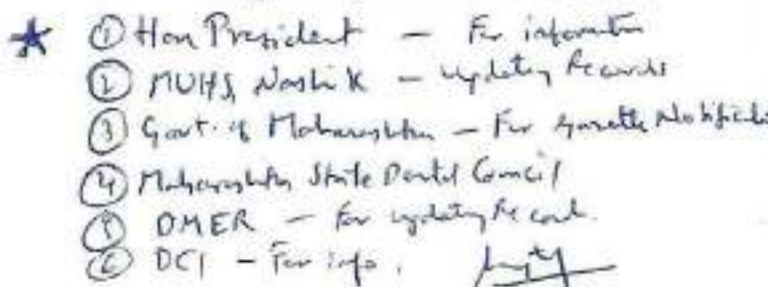 ① Hon President – For information
② MUHS, Nashik – updating Records
③ Govt. of Maharashtra – For Gazette Notification
④ Maharashtra State Dental Council
⑤ DMER – for updating Record.
⑥ DCI – For info.